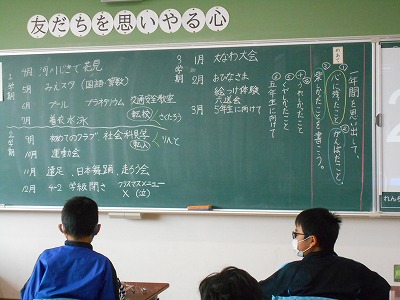 友だちを思いやる心
めあて
一年間を思い出して、
①心に残ったこと、②がんばったこと、
変わったことを書こう。
五年生に向けて
1学期
4月 河川じきで花見
5月 みんスタ(国語・算数)
6月 プール プラネタリウム 交通安全教室
転校
7月 着衣水泳
2学期
9月 初めてのクラブ 社会科見学
転入
10月 運動会
11月 遠足、日本舞踊、走ろう会
12月 4-2 学級開き クリスマスメニュー
X(泣)
3学期
1月 大なわ大会
2月 おひなさま
絵つけ体験
六送会
3月 5年生に向けて